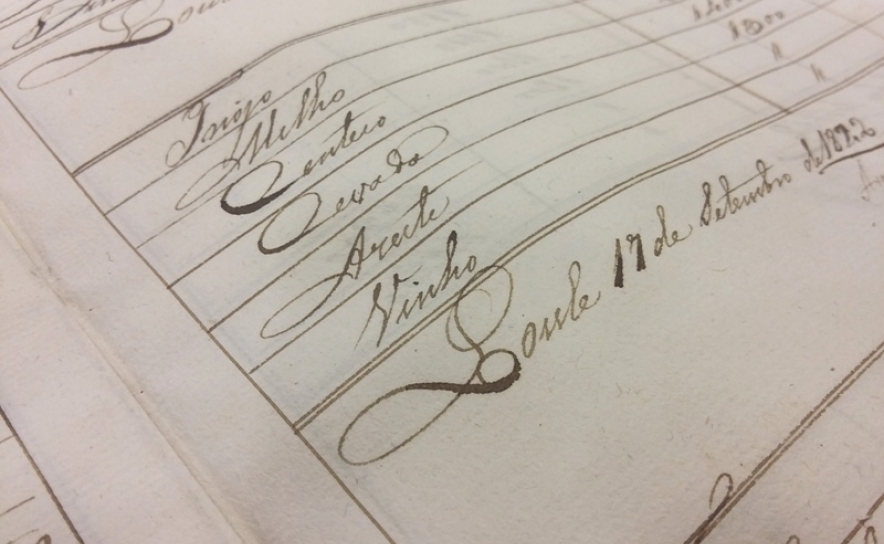 Trigo
Milho
Centeio
Cevada
Azeite
Vinho
Loule 17 de Setembro de 1822